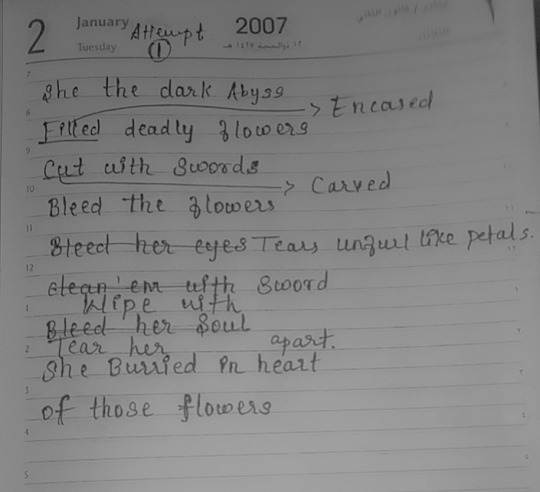 2 January 2007
Tuesday
Attempt
1
She the dark Abyss
Filled deadly flowers > Encased
Cut with Swords
> Carved
Bleed the flowers
Bleed her eyes Tears unfurl like petals.
clean 'em with Sword
Wipe with
Bleed her Soul
Tear her apart.
She Burried in heart
of those flowers
7
8
9
10
11
12
1
2
3
4
5